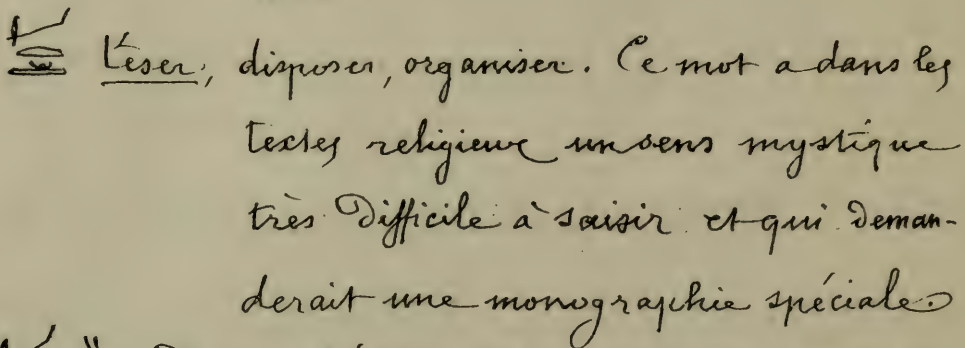 Téser, disposer, organiser. Ce mot a dans les
textes religieux un sens mystique
très difficile à saisir et qui deman-
derait une monographie spéciale.